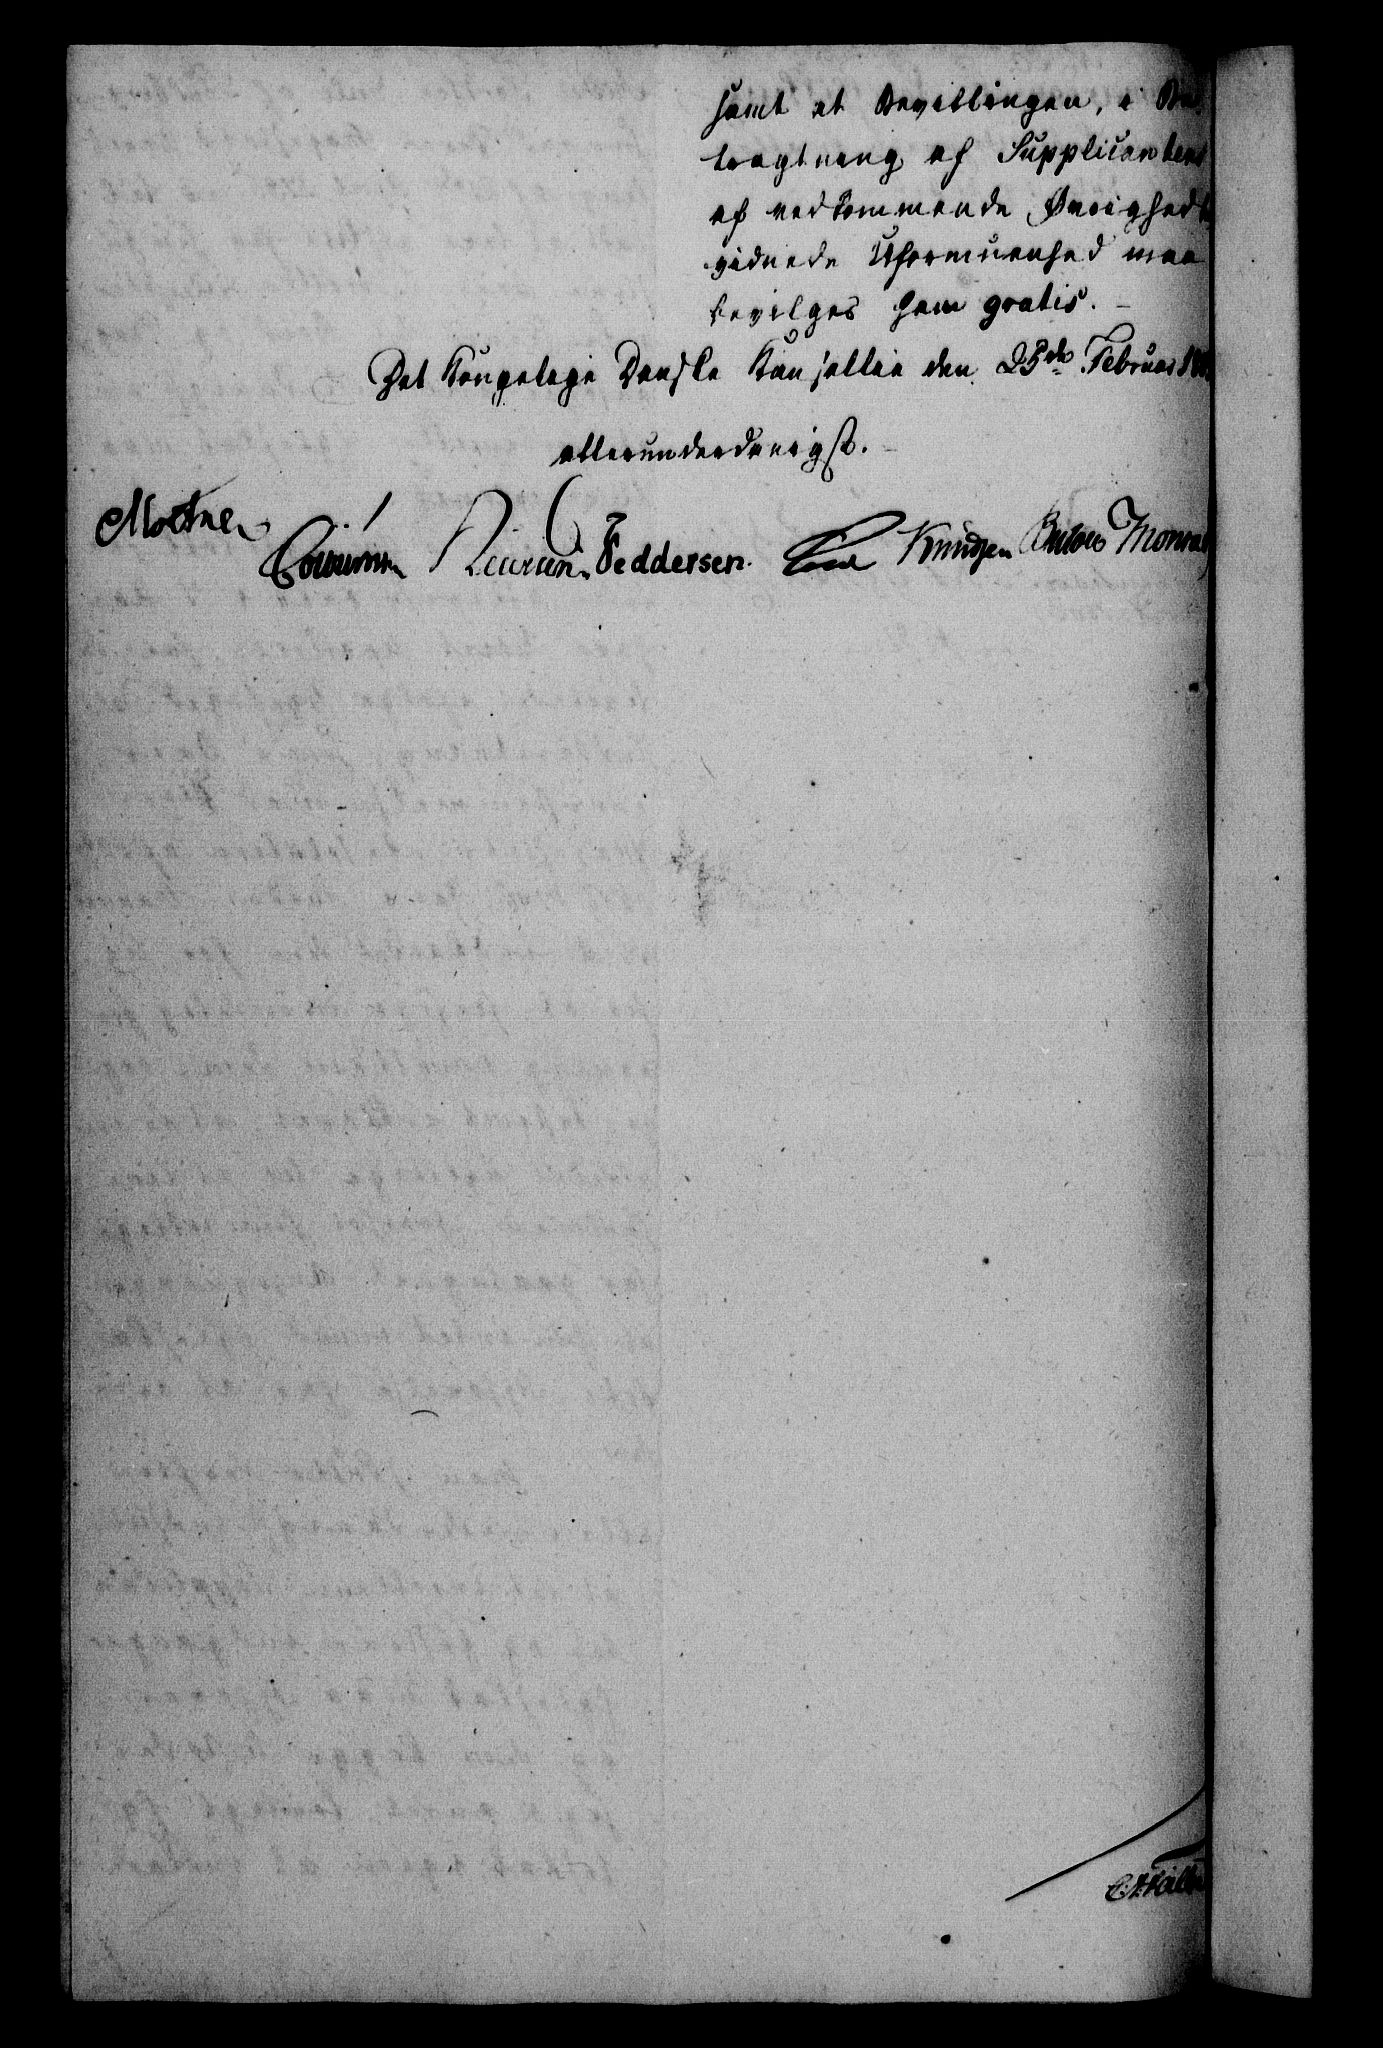 samt at Bevillingen, i Be
tragtning af Supplicantens
af vedkommende Øvrighed
vidnede Uformuenhed maa
bevilges ham gratis. -
Det Kongelige Danske Kancellie den 25de Februar 18
allerunderdanigst.
Moesner
Feddersen. Knudsen Bülow Monrad